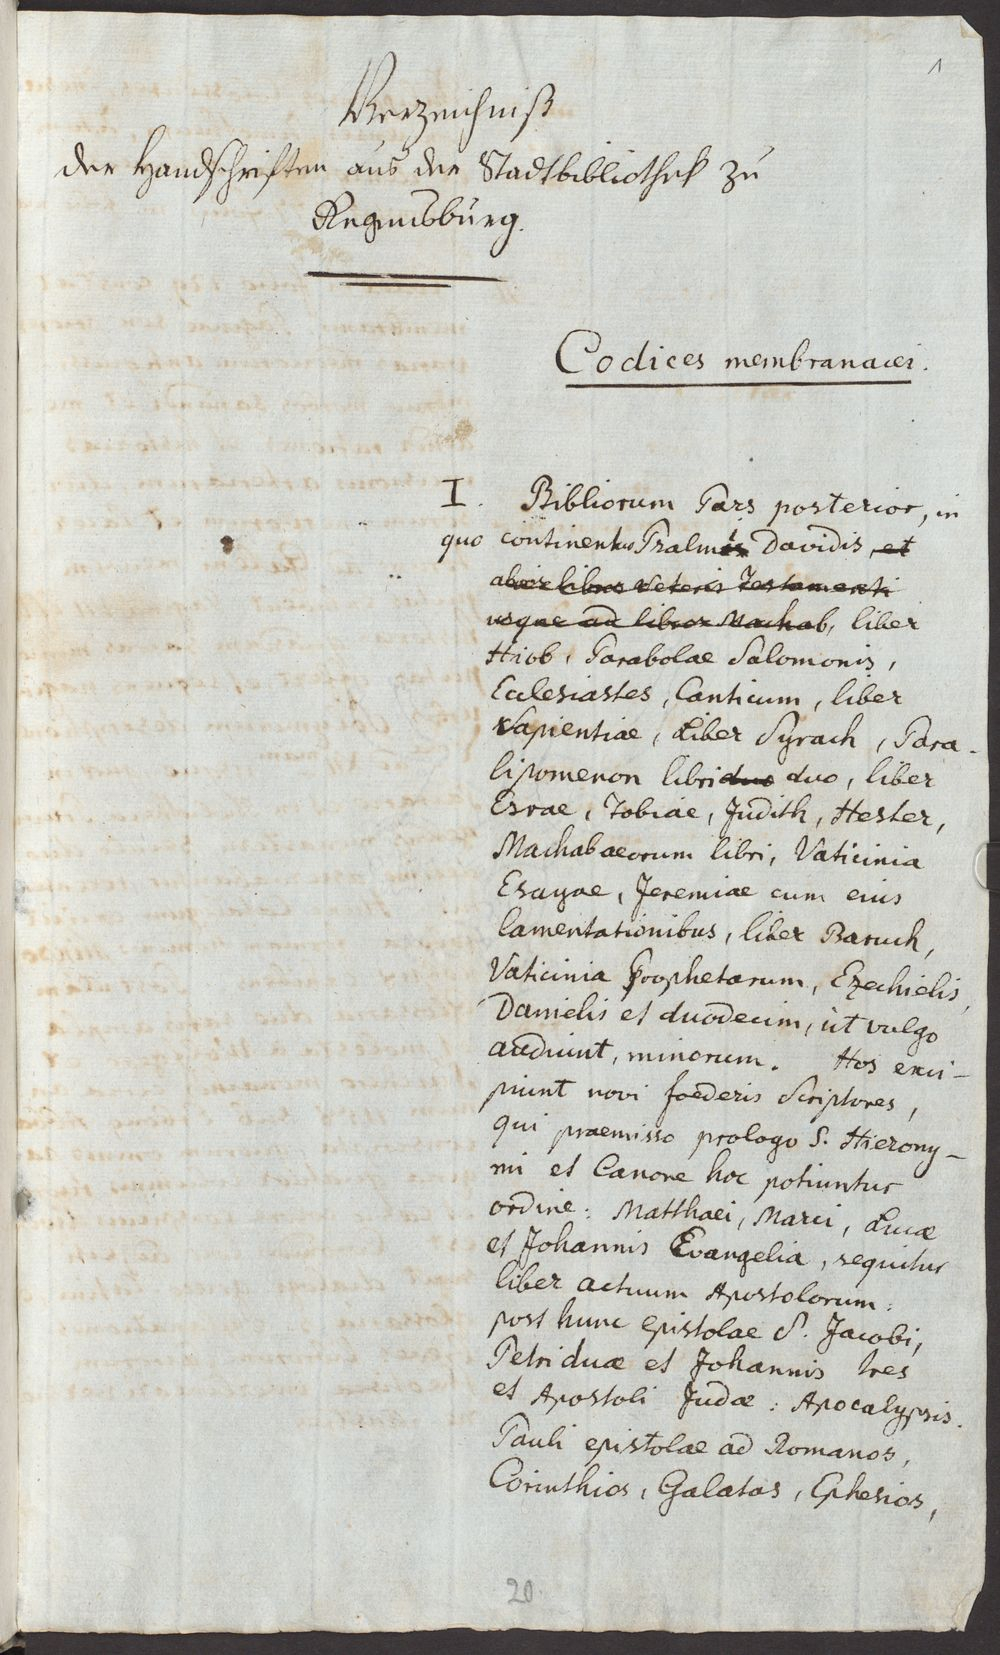 1
Verzeichniß
der Handschriften aus der Stadtbibliothek zu
Regensburg.
Codices membranacei.
I. Bibliorum Pars posterior, in
quo continentur Psalmi Davidis, et
libros Veteris Testamenti
usque ad libros Machab, liber
Hiob, Parabolae Salomonis,
Ecclesiastes, Canticum, liber
Sapientiae, Liber Syrach, Para-
lipomenon libri duo duo, liber
Esrae, Tobiae, Judith, Hester,
Machabaeorum libri, Vaticinia
Esayae, Jeremiae cum eius
lamentationibus, liber Baruch,
Vaticinia Prophetarum, Ezechielis,
Danielis et duodecim, ut vulgo
audiunt, minorum. Hos exci-
piunt novi foederis Scriptores,
qui praemisso prologo S. Hierony-
mi et Canone hoc potiuntur
ordine: Matthaei, Marci, Lucæ
et Johannis Evangelia, sequitur
liber actuum Apostolorum:
post hunc epistolae S. Jacobi,
Petri duæ et Johannis tres
et Apostoli Judæ: Apocalypsis.
Pauli epistolae ad Romanos,
Corinthios, Galatas, Ephesios,
20